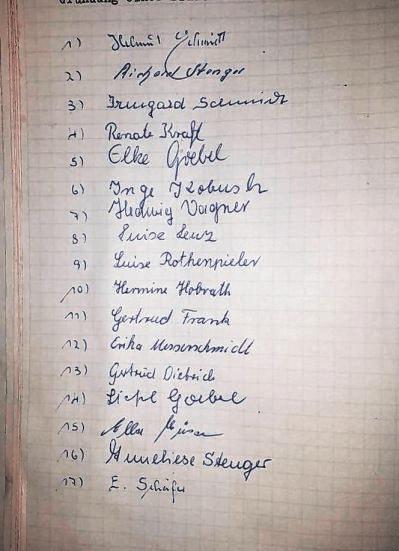 Gründung eines
1) Helmut Schmitt
2) Richard Stenger
3) Irmgard Schmidt
4) Renate Kraft
5) Elke Goebel
6) Inge Kobusch
7) Hedwig Wagner
8) Luise Lenz
9) Luise Rothenpieler
10) Hermine Hobrath
11) Gertrud Frank
12) Erika Messerschmidt
13) Gertrud Dietrich
14) Liesel Goebel
15)
16) Anneliese Stenger
17) E. Schäfer